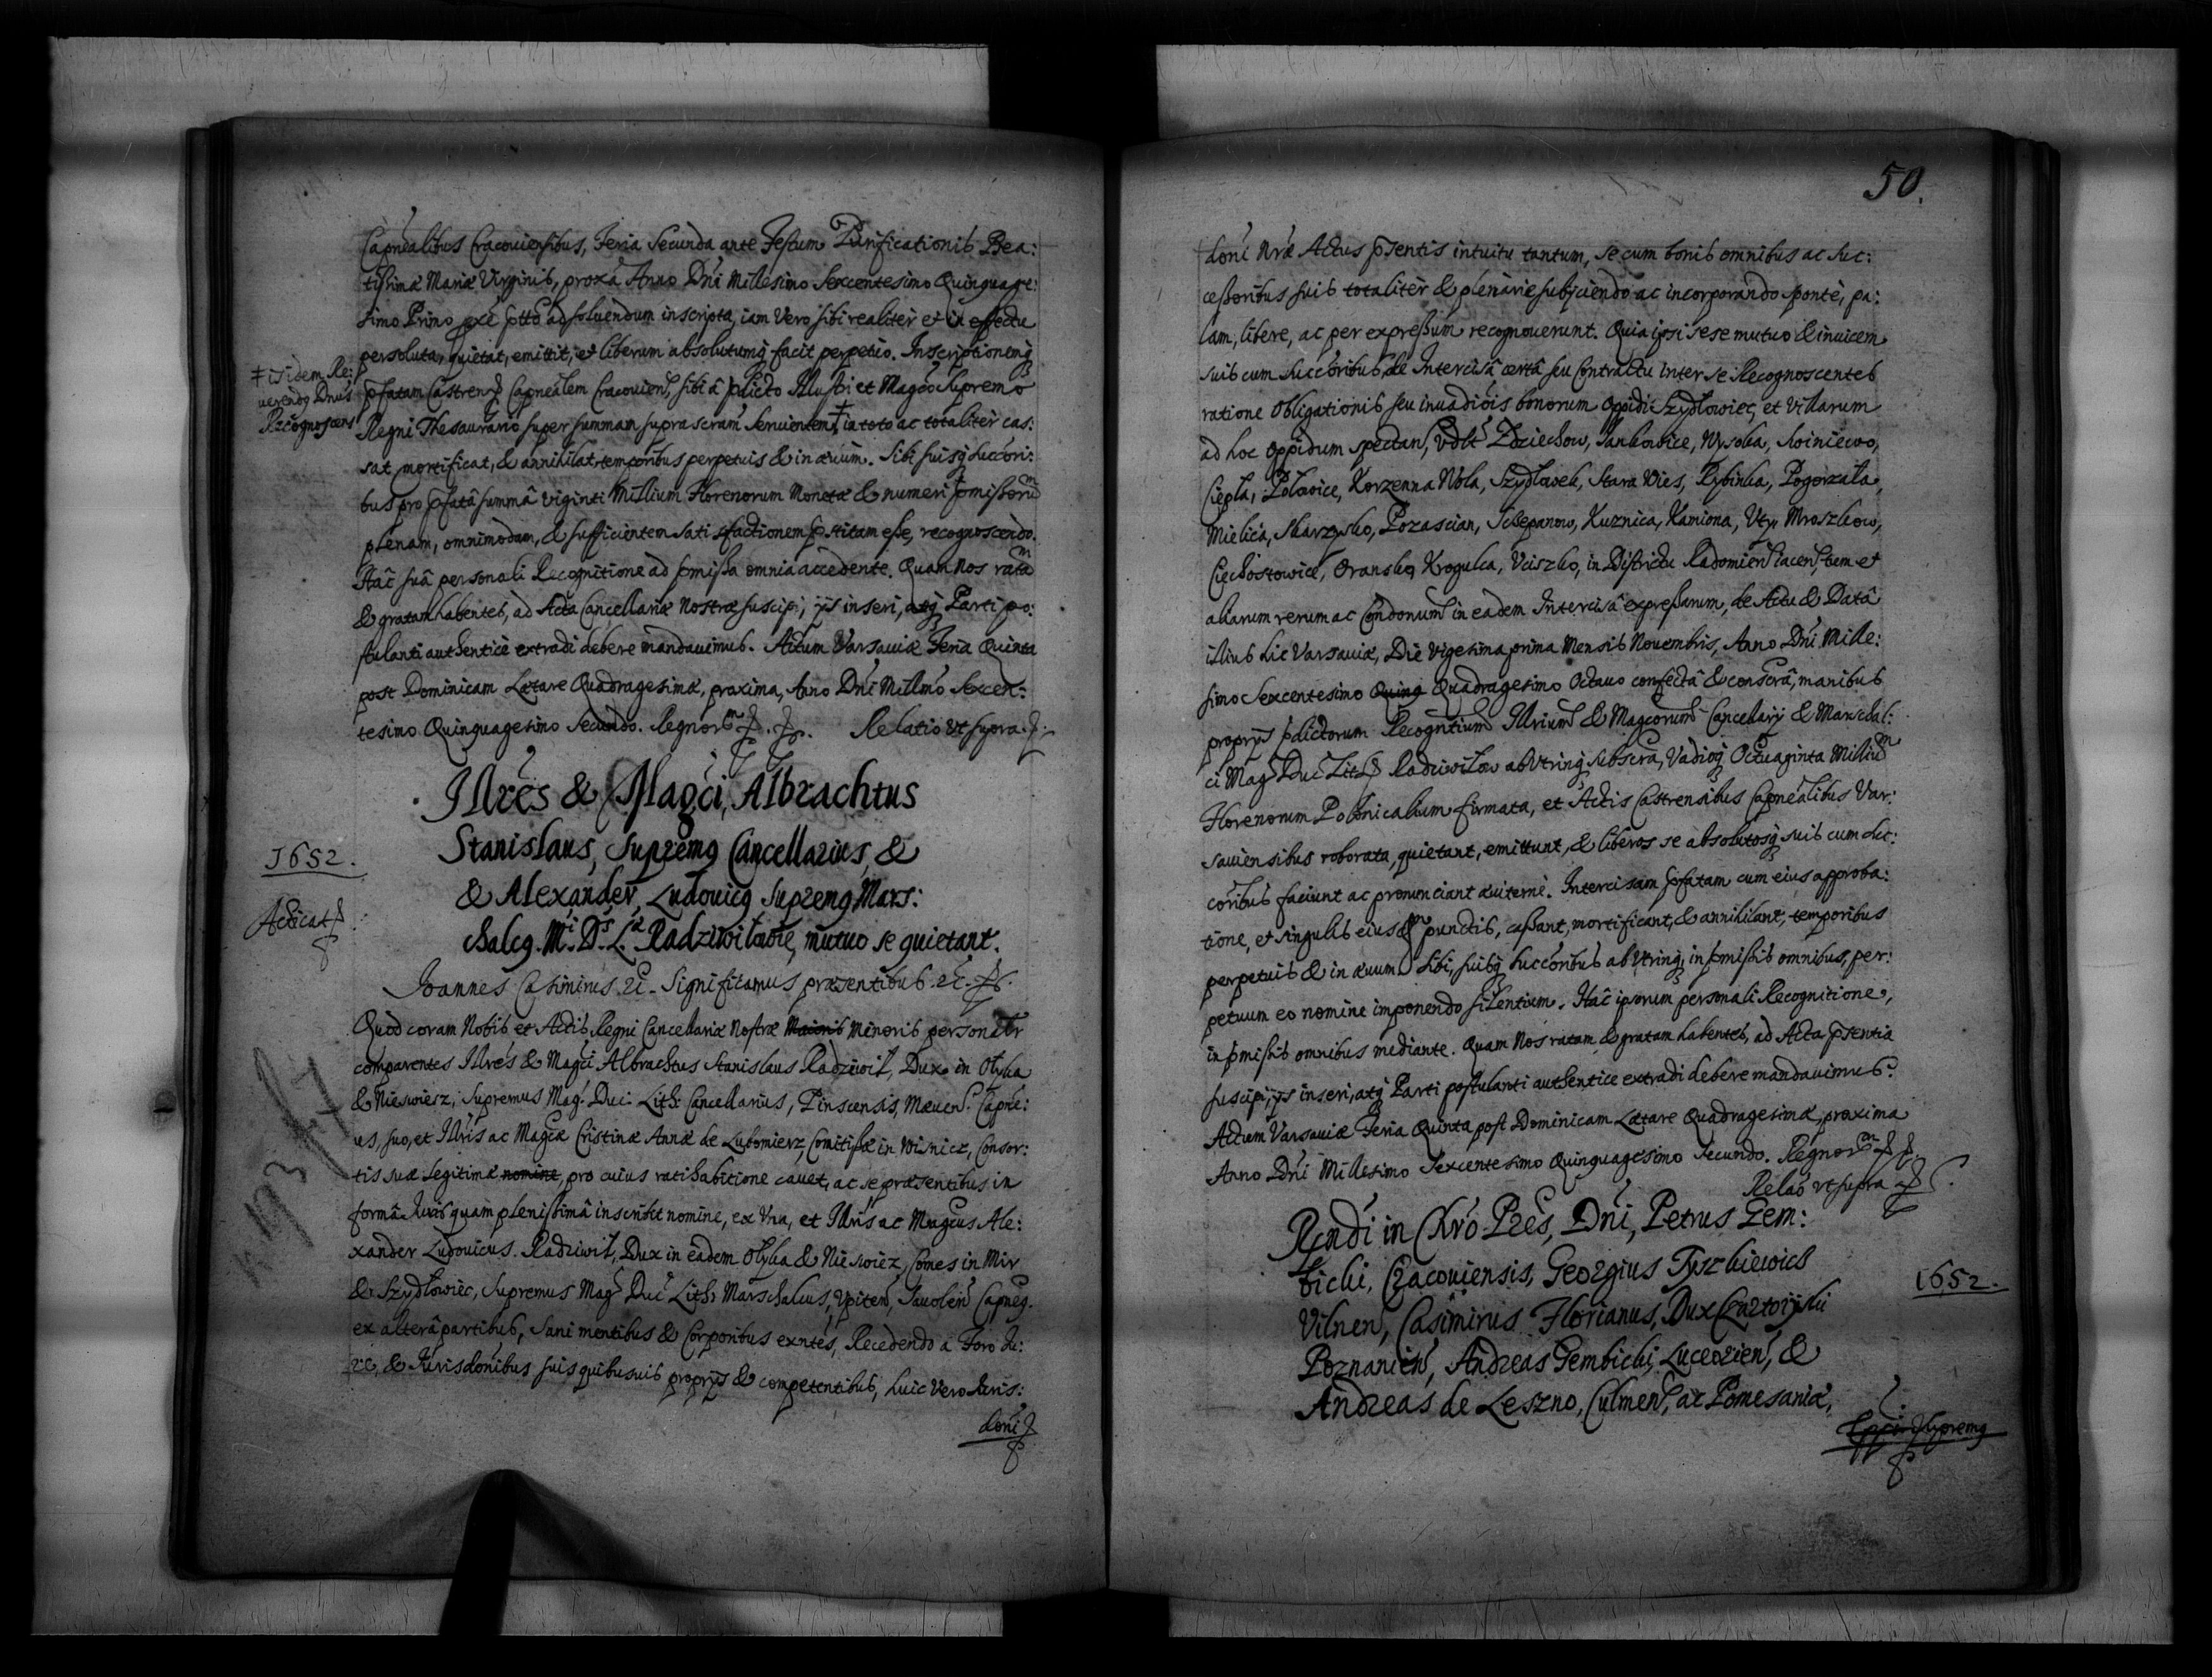 Capnealibus Cracouiensibus, Feria Secunda ante Festum Purificationis Bea:
tissimæ Mariæ Virginis, proxa Anno Dni Millesimo Sexcentesimo Quinquage:
simo Primo adsoluendum inscripta, iam Vero sibi realiter et in effectu
persoluta, quietat, emittit, et liberum absolutumq facit perpetuo. Inscriptionemq
‡ isidem Re:
uerendq Dnus
Recognoscens
pfatam Castrens Capnealem Cracouiens, sibi â pdicto Illustri et Magco Supremo
Regni Thesaurario super summam suprascram Seruientem ‡, in toto ac totaliter cas:
sat mortificat, & annihilat, temporibus perpetuis & in æuum. Sibi suisq Succori:
bus pro pfatâ summâ Viginti Millium Florenorum Monetæ & numeri pmissoru
plenam, omnimodam, & sufficientem satisfactionem pstitam esse, recognoscendo.
Hac suâ personali Recognitione ad pmissa omnia accedente. Quam Nos rata
& gratam habentes, ad Acta Cancellariæ Nostræ suscipi, ijs inseri, atq Parti po:
stulanti authentice extradi debere mandauimus. Actum Varsauiæ Feria Quinta
post Dominicam Lætare Quadragesimæ, proxima, Anno Dni Millmo Sexcen:
tesimo Quinquagesimo Secundo. Regnor Relatio vt supra.
Illres & Magci, Albrachtus
Stanislaus, Supremq Cancellarius, &
& Alexander, Ludouicq Supremq Mars:
chalcq. Mi. Ds. Læ Radziwilowie, mutuo se quietant.
1652.
Joannes Casimirus. Significamus præsentibus.
Quod coram Nobis et Actis Regni Cancellariæ Nostræ Maioris Minoris personaltr
comparentes Illres & Magci Albrachtus Stanislaus Radziwil, Dux in Olyka
& Nieswiesz, Supremus Mag. Duc: Lith: Cancellarius, Pinscensis, Capne:
us, suo, et Illris ac Magcæ Cristinæ Annæ de Lubomierz, Comitissæ in Wisnicz, Consor:
tis suæ legitimæ nomine, pro cuius ratihabitione cauet, ac se præsentibus in
formâ Juris quam plenissimâ inscribit nomine, ex Vna, et Illris ac Magcus Ale:
xander Ludouicus Radziwil, Dux in eadem Olyka & Nieswiez, Comes in Mir
& Szydłowiec, Supremus Mag Duc Lith: Marschalcus, Vpiten, Capneq.
ex alterâ partibus, Sani mentibus & Corporibus exntes, Recedendo a Foro Ju:
ris, & Jurisdonibus suis quibusuis proprijs & competentibus, huic Vero Juris:
doni
50.
doni Nræ Actus psentis intuitu tantum, se cum bonis omnibus ac Suc:
cessoribus suis totaliter & plenarie subjiciendo ac incorporando sponte, pa:
lam, libere, ac per expressum recognouerunt. Quia ipsi sese mutuo & inuicem
suis cum Succoribus de Intercisâ certâ seu Contractu inter se Recognoscentes
ratione Obligationis seu inuadiois bonorum Oppidi Szydłowiec, et Villarum
ad hoc Oppidum spectan, Vdlt Zdziechow, Jankowice, Wysoka,
Ciepla, Polawice, Korzenna Wola, Szydlowek, Stara Wies, Rybinka, Pogorzała,
Mielica, Skarzysko, Pozascian, Sczepanow, Kuznica, Kamiona, Vty, Mroszkow,
Ciechostowice, Oransko, Krogulca, in Districtu Radomien iacen, tum et
aliarum rerum ac Condonum in eadem Intercisâ expressarum, de Actu & Datâ
illius hic Varsauiæ, Die Vigesima prima Mensis Nouembris, Anno Dni Mille:
simo Sexcentesimo Quinq Quadragesimo Octauo confectâ & conscrâ, manibus
proprijs pdictorum Recogntium Illrium & Magcorum Cancellarij & Marschal:
ci Mag Duc Lith Radziwilow ab Vtrinq subscra, Vadioq Octuaginta Milliu
Florenorum Polonicalium firmata, et Actis Castrensibus Capnealibus Var:
sauiensibus roborata, quietant, emittunt, & liberos se absolutosq suis cum Suc:
coribus faciunt ac pronunciant æuiterne. Intercisam pfatam cum eius approba:
tione, et singulis eius punctis, cassant, mortificant, & annihilant, temporibus
perpetuis & in æuum. Sibi, suisq Succoribus ab Vtrinq, in pmissis omnibus, per:
petuum eo nomine imponendo silentium. Hac ipsorum personali Recognitione,
in pmissis omnibus mediante. Quam Nos ratam & gratam habentes, ad Acta psentia
suscipi, ijs inseri, atq Parti postulanti authentice extradi debere mandauimus.
Actum Varsauiæ Feria Quinta post Dominicam Lætare Quadragesimæ, proxima
Anno Dni Millesimo Sexcentesimo Quinquagesimo Secundo. Regnor
Relao vt supra
Rndi in Chro Pres, Dni, Petrus Gem:
bicki, Cracouiensis, Georgius Tyszkiewicz
1652.
Vilnen, Casimirus Florianus, Dux Czartoryski
Poznanien, Andreas Gembicki, Luceorien, &
Andreas de Leszno, Culmen, ac Pomesaniæ,
Eppi Supremq